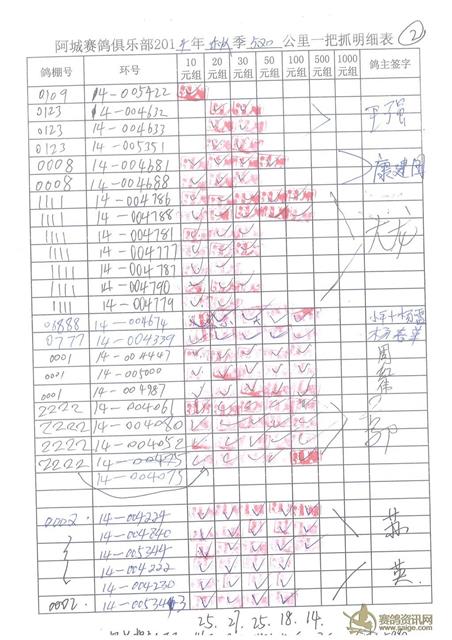 阿城赛鸽俱乐部201 年 秋 季 500 公里一把抓明细表 2
鸽棚号 环号 10元组 20元组 30元组 50元组 100元组 500元组 1000元组 鸽主签字
0109 14-005422
0123 14-004632
0123 14-004633 王强
0123 14-005351
0008 14-004681 康建国
0008 14-004688
1111 14-004786
1111 14-004788
1111 14-004781 大龙
1111 14-004777
1111 14-004787
1111 14-004790
1111 14-004779
08888 14-004674
0777 14-004339
0001 14-004447 周
0001 14-005000 红
0001 14-004987 伟
2222 14-004061
2222 14-004080
2222 14-004052
2222 14-004
14-004075
0002 14-004224
14-004840 苏
14-005344
14-004222 英
14-004230
0002 14-0053
25. 27. 25. 18. 14.
赛鸽资讯网
www.saige.com